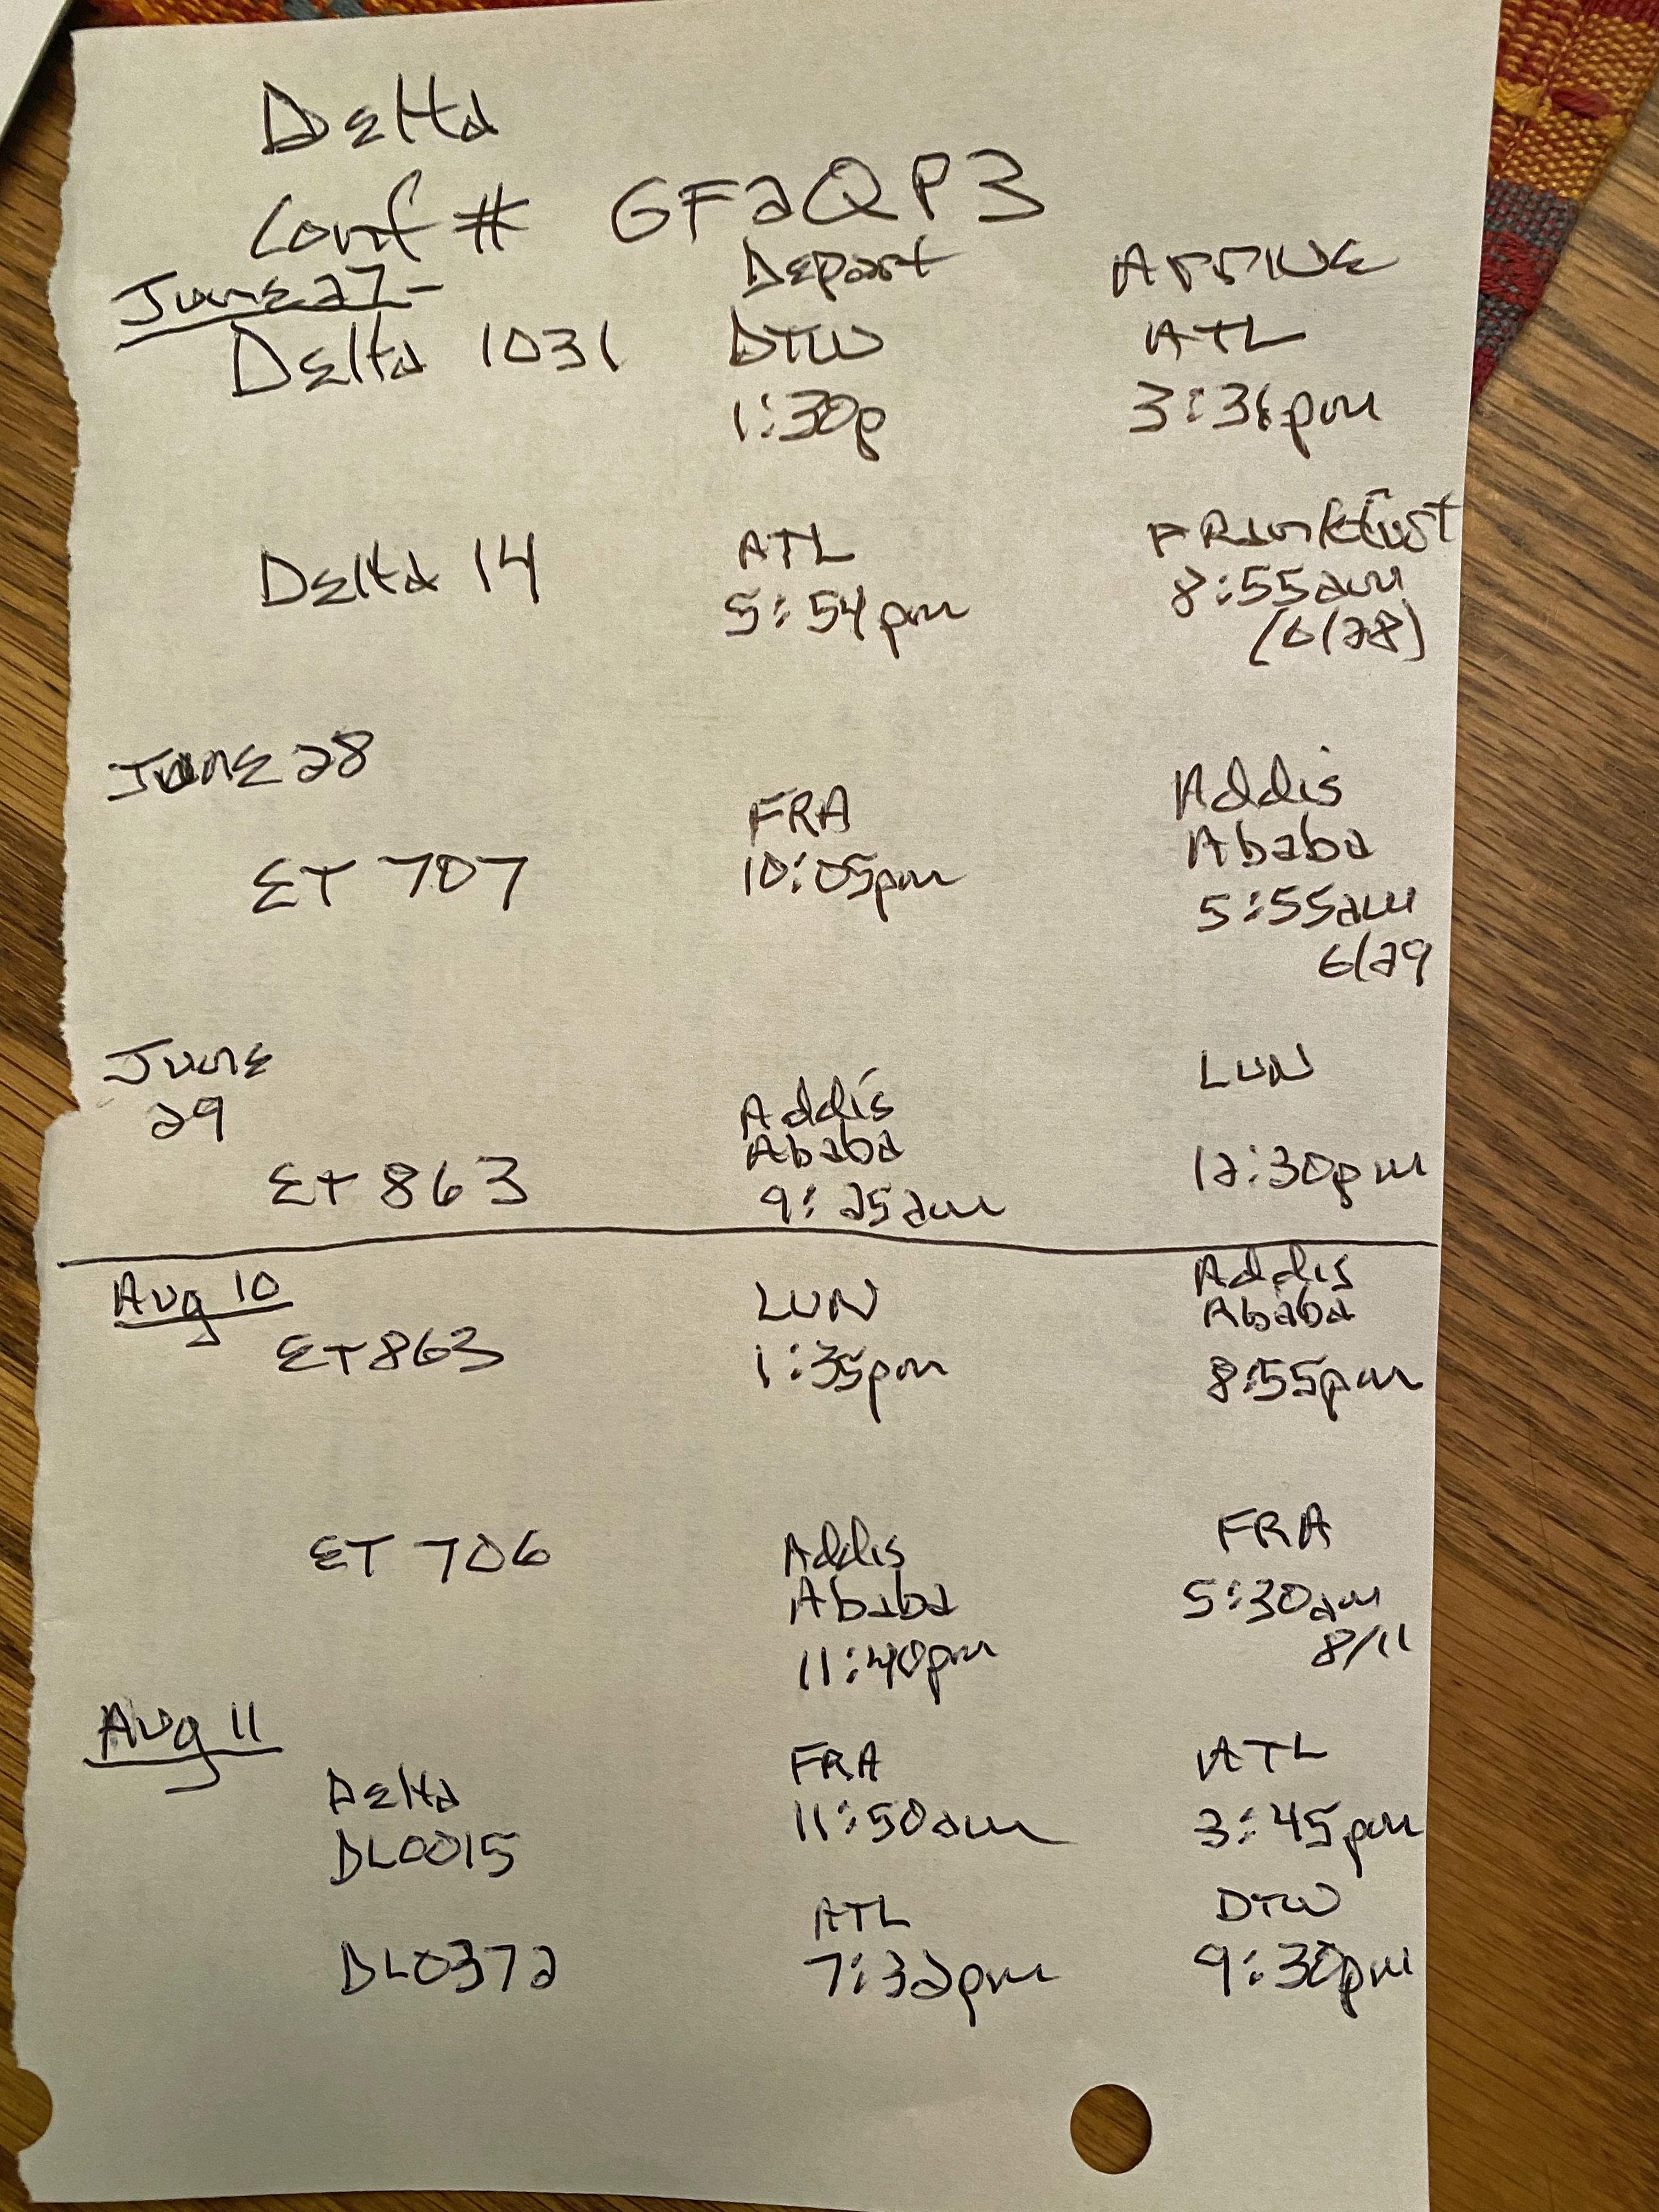 Delta
Conf # GF2QP3
June 27- Depart Arrive
Delta 1031 DTW ATL
1:30p 3:36pm
Delta 14 ATL Frankfurt
5:54pm 8:55am
(6/28)
June 28
FRA Addis
ET 707 10:05pm Ababa
5:55am
6/29
June LUN
29 Addis
Ababa
ET 863 9:25am 12:30pm
Aug 10 LUN Addis
Ababa
ET863 1:35pm 8:55pm
ET 706 Addis FRA
Ababa 5:30am
11:40pm 8/11
Aug 11
Delta FRA ATL
DL0015 11:50am 3:45pm
ATL DTW
DL0372 7:32pm 9:30pm